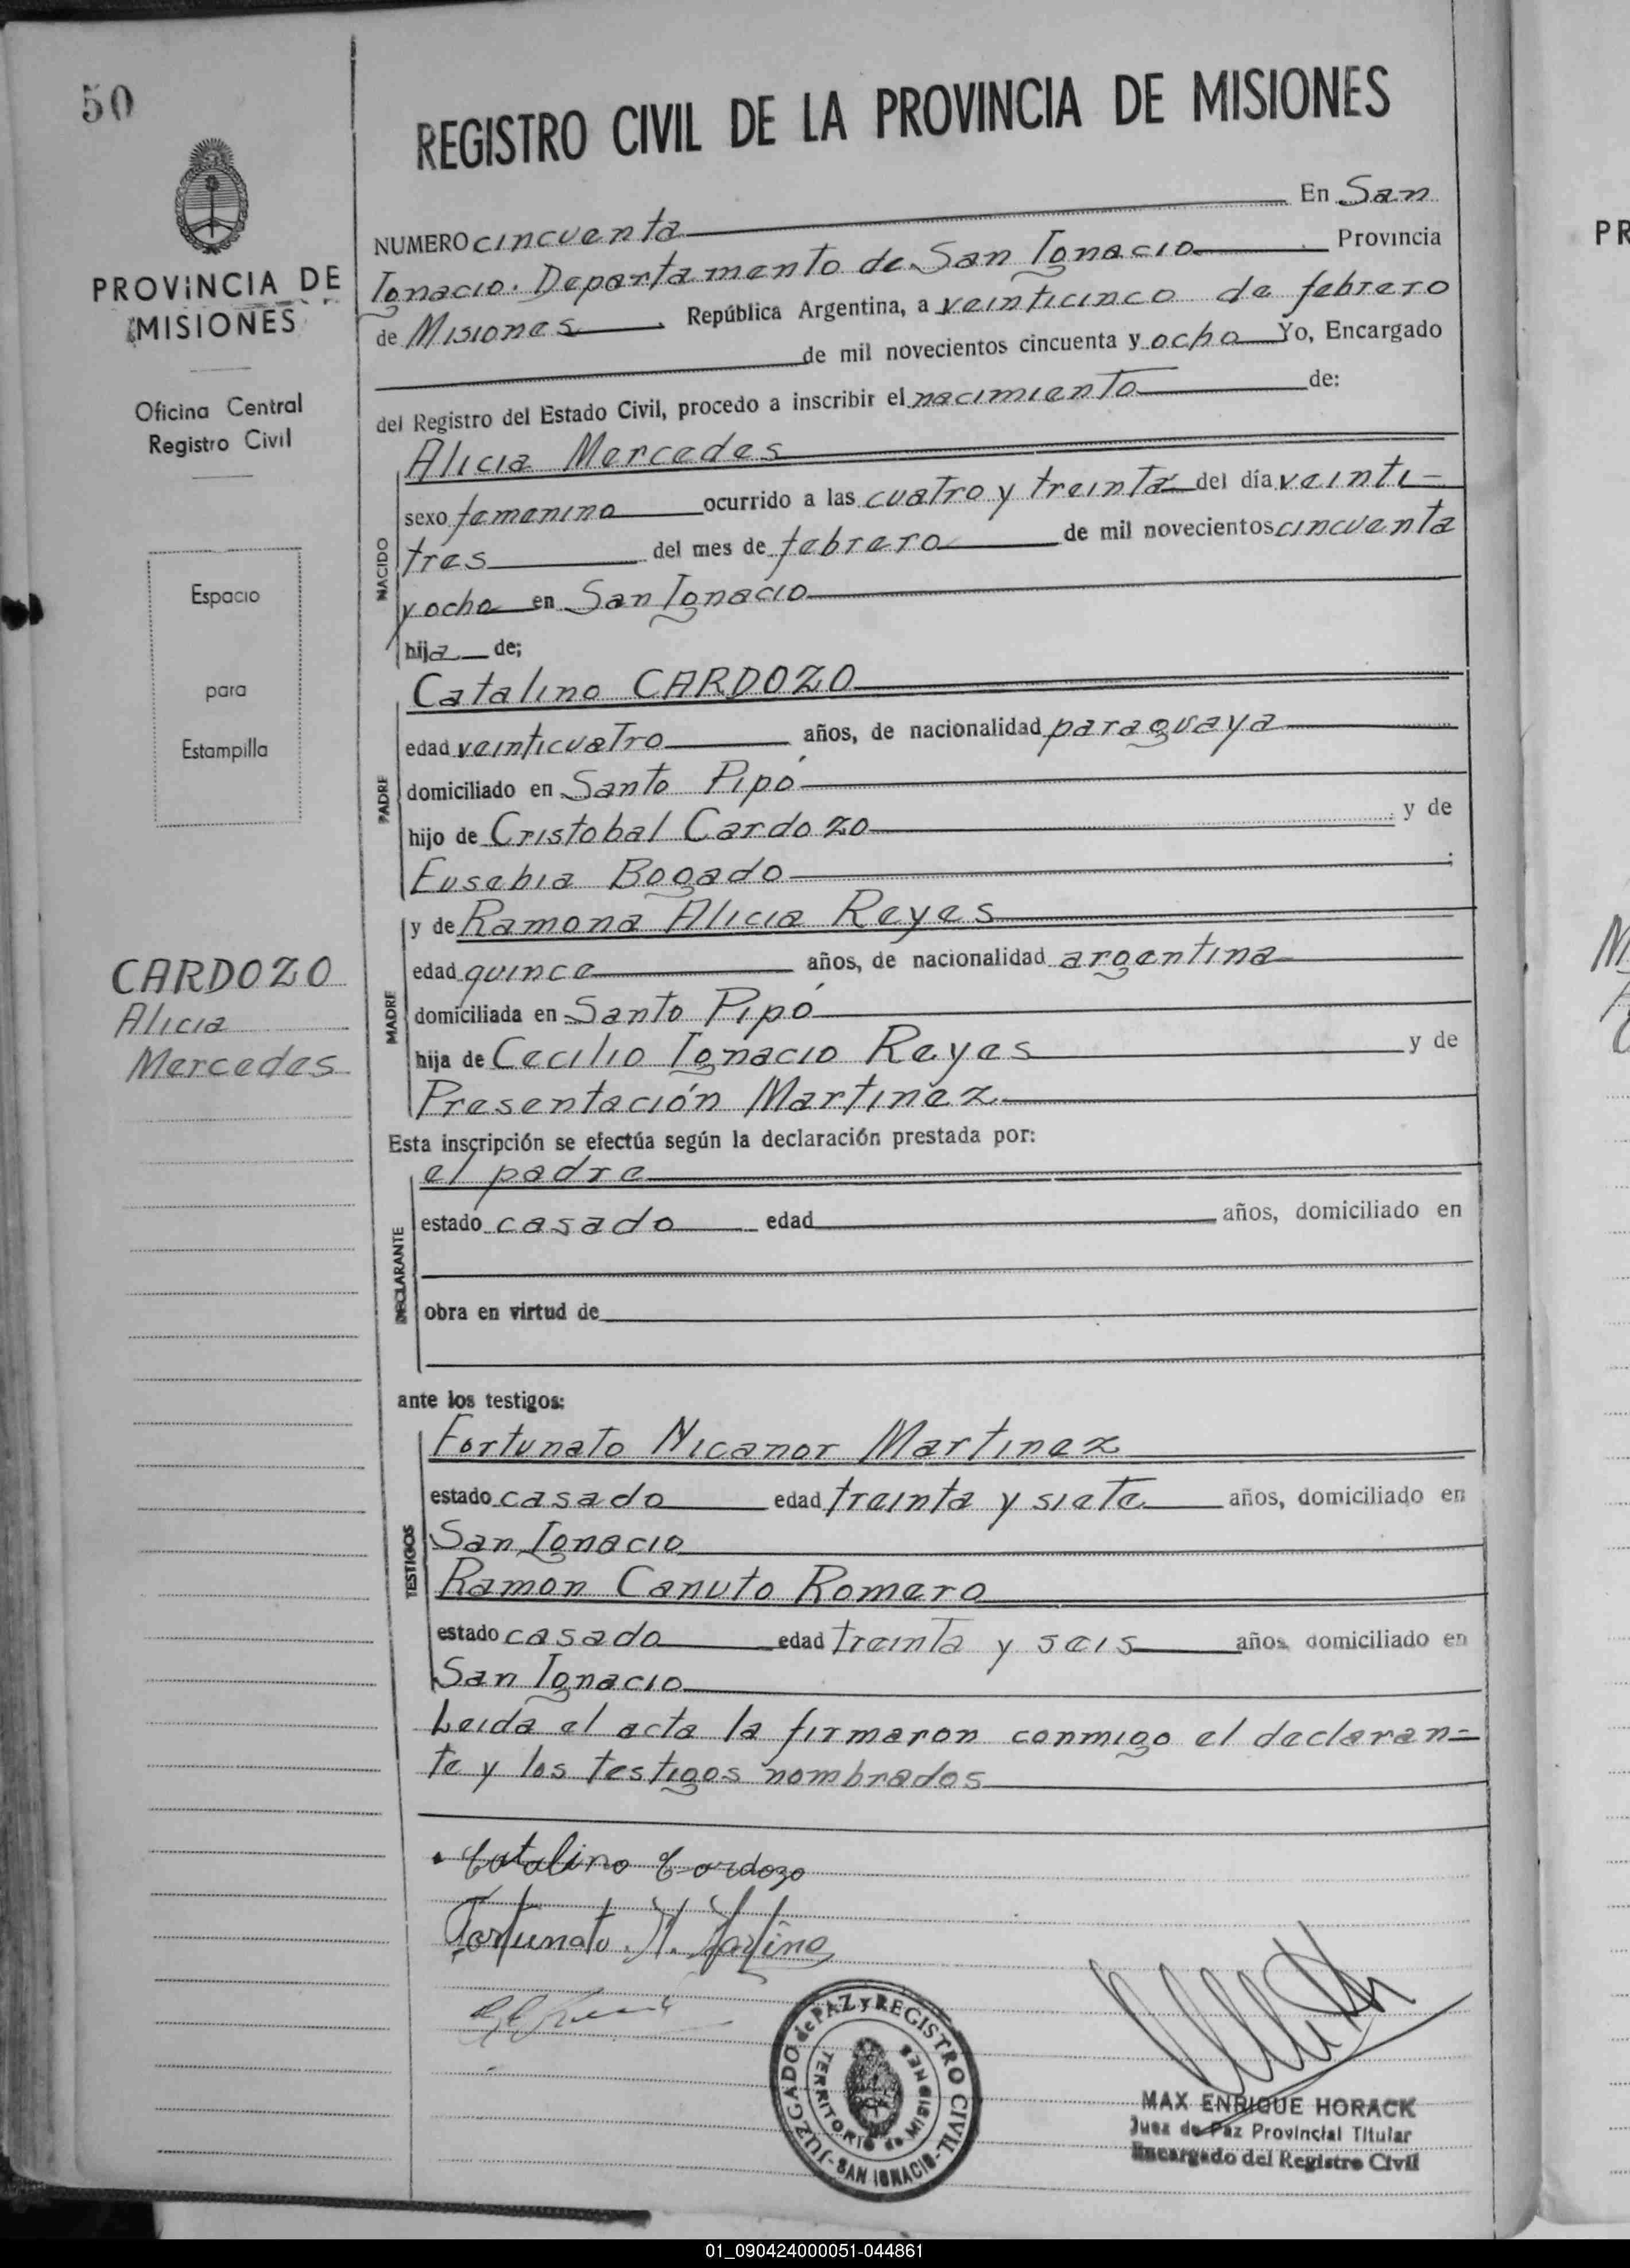 50
PROVINCIA DE
MISIONES
Oficina Central
Registro Civil
Espacio
para
Estampilla
CARDOZO
Alicia
Mercedes
REGISTRO CIVIL DE LA PROVINCIA DE MISIONES
NUMERO cincuenta En San
Ignacio. Departamento de San Ignacio Provincia
de Misiones, República Argentina, a veinticinco de febrero
de mil novecientos cincuenta y ocho Yo, Encargado
del Registro del Estado Civil, procedo a inscribir el nacimiento de:
NACIDO
Alicia Mercedes
sexo femenino ocurrido a las cuatro y treinta del día veinti-
tres del mes de febrero de mil novecientos cincuenta
y ocho en San Ignacio
hija de;
PADRE
Catalino CARDOZO
edad veinticuatro años, de nacionalidad paraguaya
domiciliado en Santo Pipó
hijo de Cristobal Cardozo y de
Eusebia Bogado;
MADRE
y de Ramona Alicia Reyes
edad quince años, de nacionalidad argentina
domiciliada en Santo Pipó
hija de Cecilio Ignacio Reyes y de
Presentación Martinez
Esta inscripción se efectúa según la declaración prestada por:
DECLARANTE
el padre
estado casado edad años, domiciliado en
obra en virtud de
ante los testigos:
TESTIGOS
Fortunato Nicanor Martinez
estado casado edad treinta y siete años, domiciliado en
San Ignacio
Ramon Canuto Romero
estado casado edad treinta y seis años domiciliado en
San Ignacio
Leida el acta la firmaron conmigo el declaran=
te y los testigos nombrados
Catalino Cardozo
Fortunato N. Martinez
JUZGADO de PAZ y REGISTRO CIVIL
TERRITORIO de MISIONES
-SAN IGNACIO-
MAX ENRIQUE HORACK
Juez de Paz Provincial Titular
Encargado del Registro Civil
PR
01_090424000051-044861